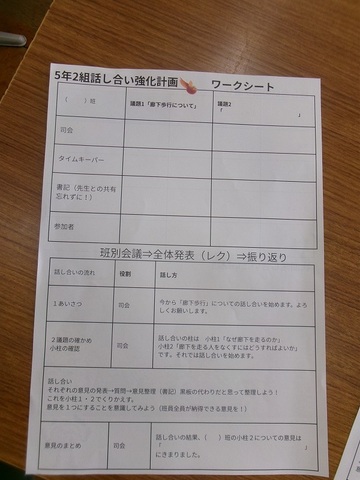 5年2組話し合い強化計画 ワークシート
（　　）班 議題1「廊下歩行について」 議題2
「　　　　　　　　」
司会
タイムキーパー
書記（先生との共有
忘れずに！）
参加者
班別会議⇒全体発表（レク）⇒振り返り
話し合いの流れ 役割 話し方
１あいさつ 司会 今から「廊下歩行」についての話し合いを始めます。よろ
しくお願いします。
２議題の確かめ
小柱の確認 司会 話し合いの柱は　小柱1「なぜ廊下を走るのか」
小柱2「廊下を走る人をなくすにはどうすればよいか」
です。それでは話し合いを始めます。
話し合い
それぞれの意見の発表→質問→意見整理（書記）黒板の代わりだと思って整理しよう！
これを小柱１・２でくりかえす。
意見を１つにすることを意識してみよう（班員全員が納得できる意見を！）
意見のまとめ 司会 話し合いの結果、（　　）班の小柱２についての意見は
「　　　　　　　　」
にきまりました。